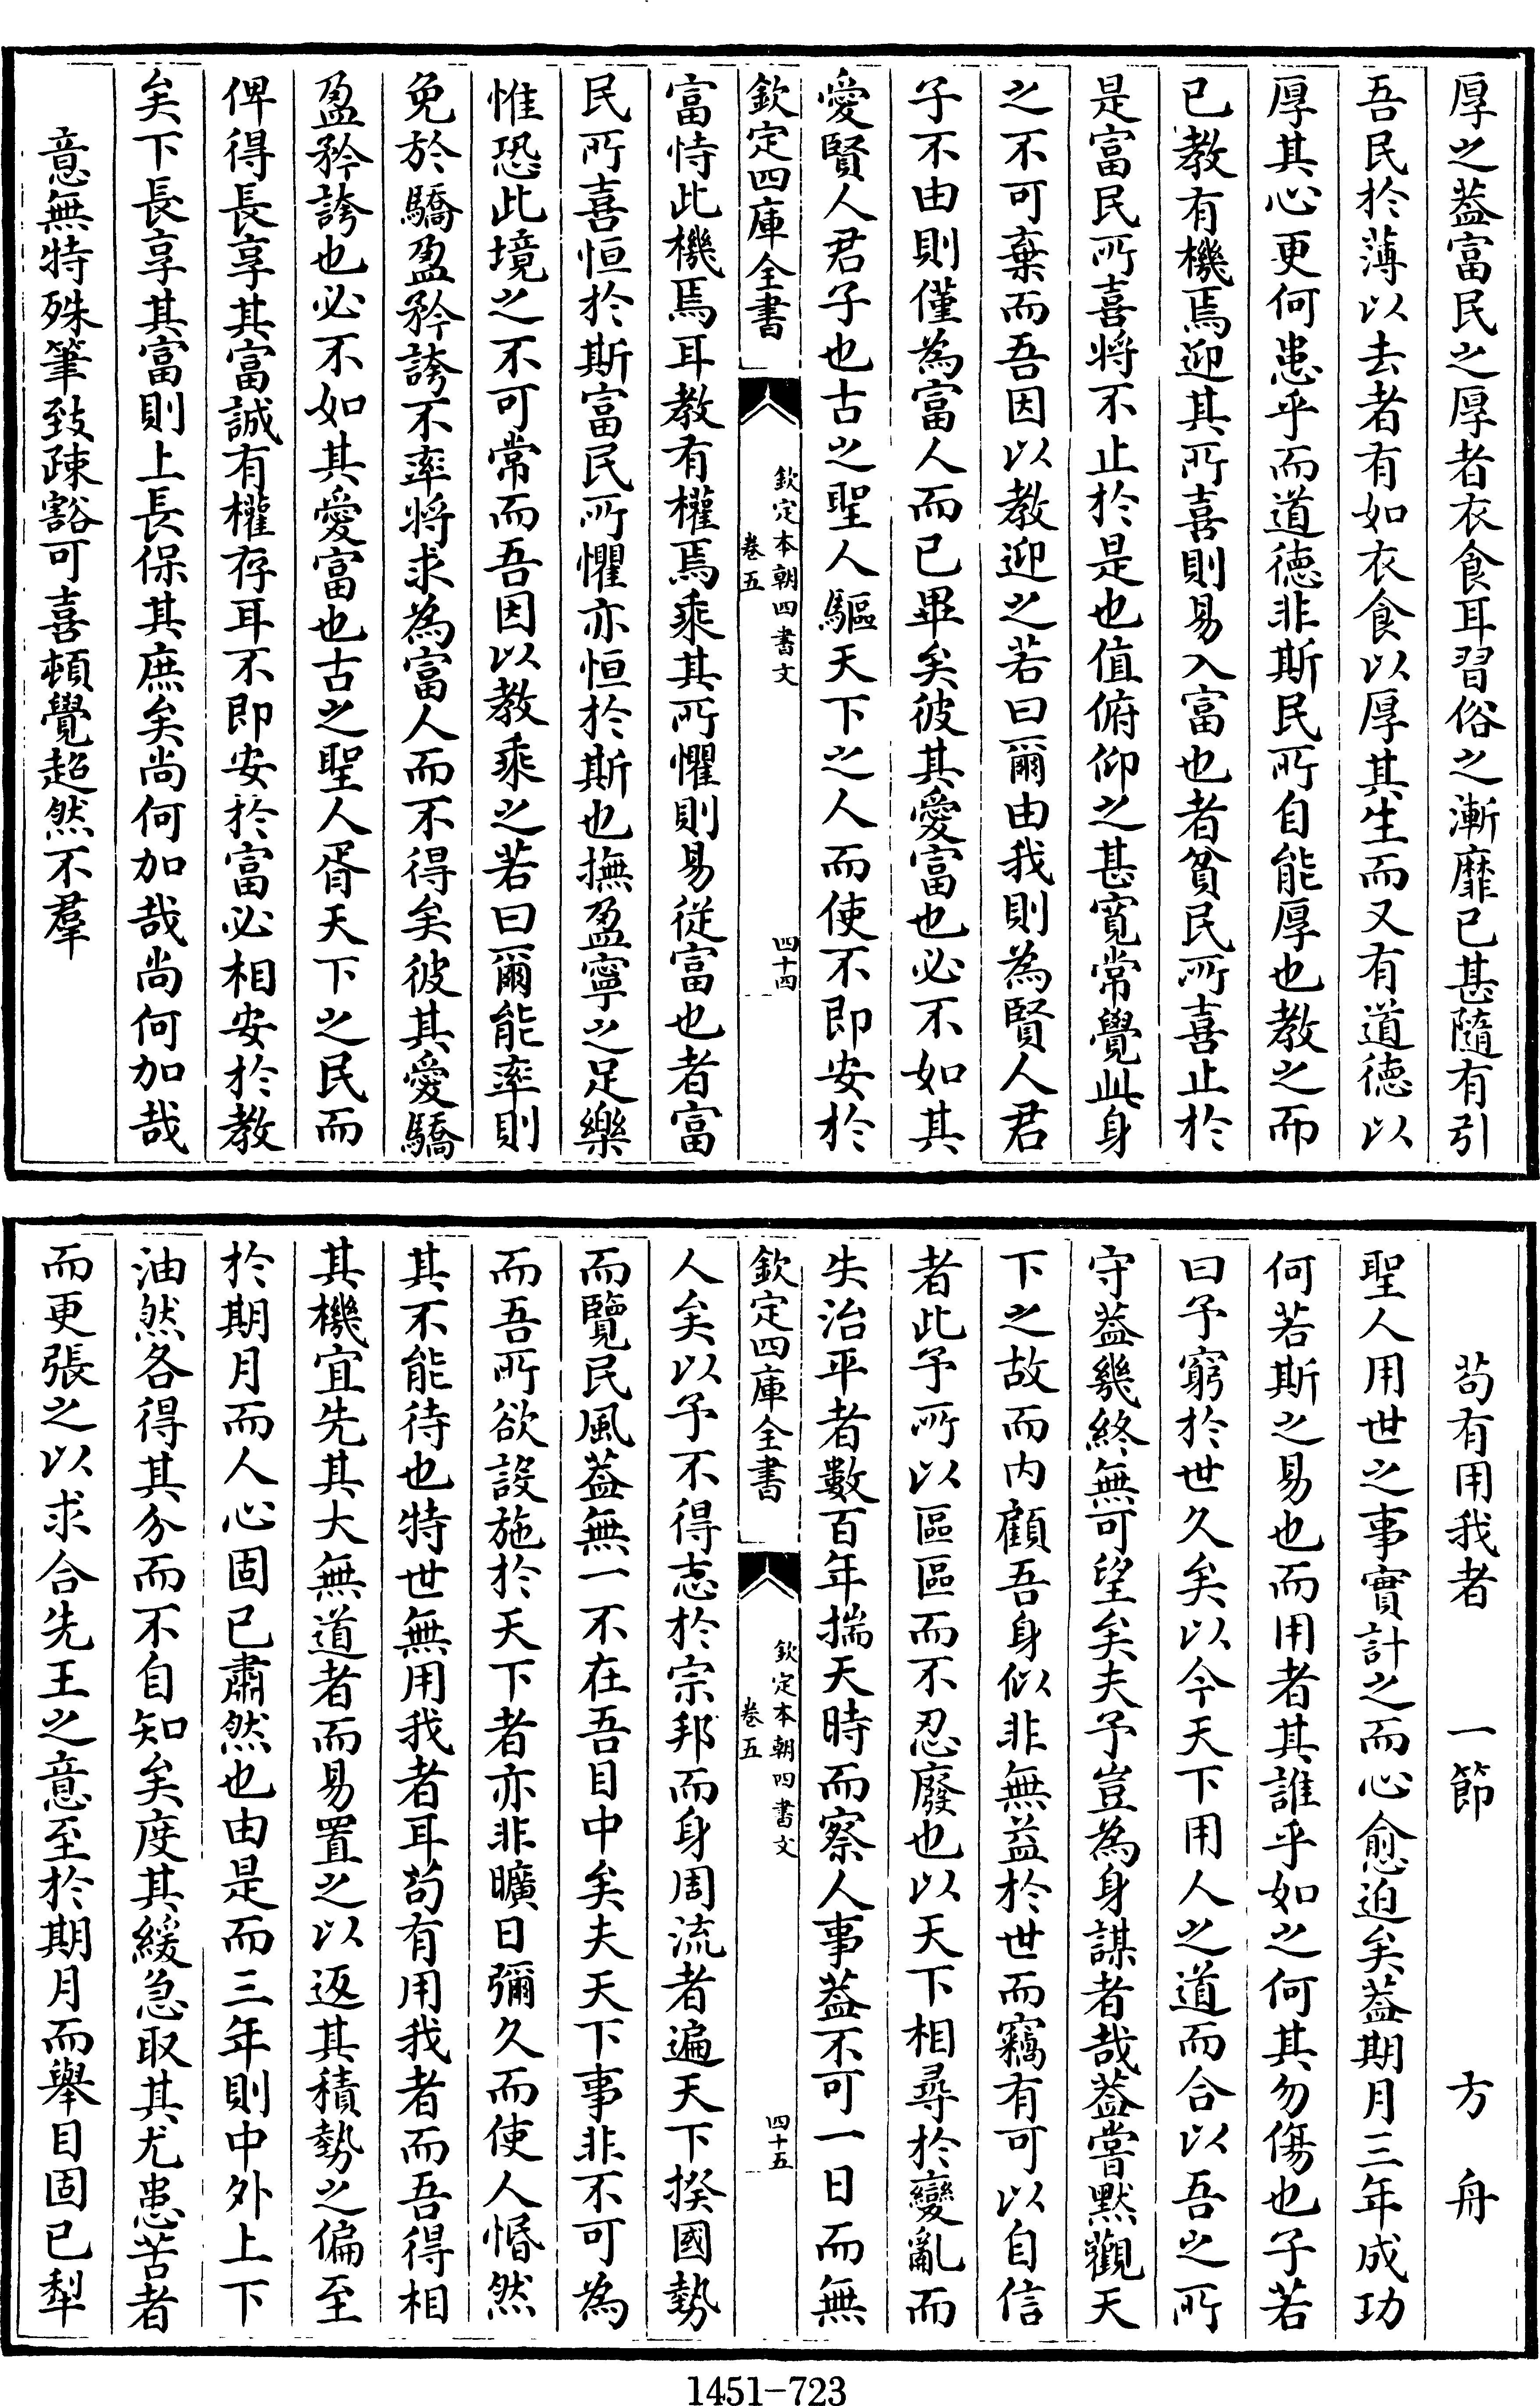 厚之葢富民之厚者衣食耳習俗之漸靡已甚隨有引
吾民於薄以去者有如衣食以厚其生而又有道德以
厚其心更何患乎而道德非斯民所自能厚也教之而
已教有機焉迎其所喜則易入富也者貧民所喜止於
是富民所喜將不止於是也值俯仰之甚寛常覺此身
之不可棄而吾因以教迎之若曰爾由我則為賢人君
子不由則僅為富人而已畢矣彼其愛富也必不如其
愛賢人君子也古之聖人驅天下之人而使不即安於
欽定四庫全書
欽定本朝四書文
卷五
四十四
富恃此機焉耳教有權焉乘其所懼則易從富也者富
民所喜恒於斯富民所懼亦恒於斯也撫盈寧之足樂
惟恐此境之不可常而吾因以教乘之若曰爾能率則
免於驕盈矜誇不率將求為富人而不得矣彼其愛驕
盈矜誇也必不如其愛富也古之聖人胥天下之民而
俾得長享其富誠有權存耳不即安於富必相安於教
矣下長享其富則上長保其庶矣尚何加哉尚何加哉
意無特殊筆致疎豁可喜頓覺超然不羣
苟有用我者　一節　方舟
聖人用世之事實計之而心愈迫矣葢期月三年成功
何若斯之易也而用者其誰乎如之何其勿傷也子若
曰予窮於世久矣以今天下用人之道而合以吾之所
守葢幾終無可望矣夫予豈為身謀者哉葢嘗默觀天
下之故而内顧吾身似非無益於世而竊有可以自信
者此予所以區區而不忍廢也以天下相尋於變亂而
失治平者數百年揣天時而察人事葢不可一日而無
欽定四庫全書
欽定本朝四書文
卷五
四十五
人矣以予不得志於宗邦而身周流者遍天下揆國勢
而覽民風葢無一不在吾目中矣夫天下事非不可為
而吾所欲設施於天下者亦非曠日彌久而使人惛然
其不能待也特世無用我者耳苟有用我者而吾得相
其機宜先其大無道者而易置之以返其積勢之偏至
於期月而人心固已肅然也由是而三年則中外上下
油然各得其分而不自知矣度其緩急取其尤患苦者
而更張之以求合先王之意至於期月而舉目固已犁
1451-723